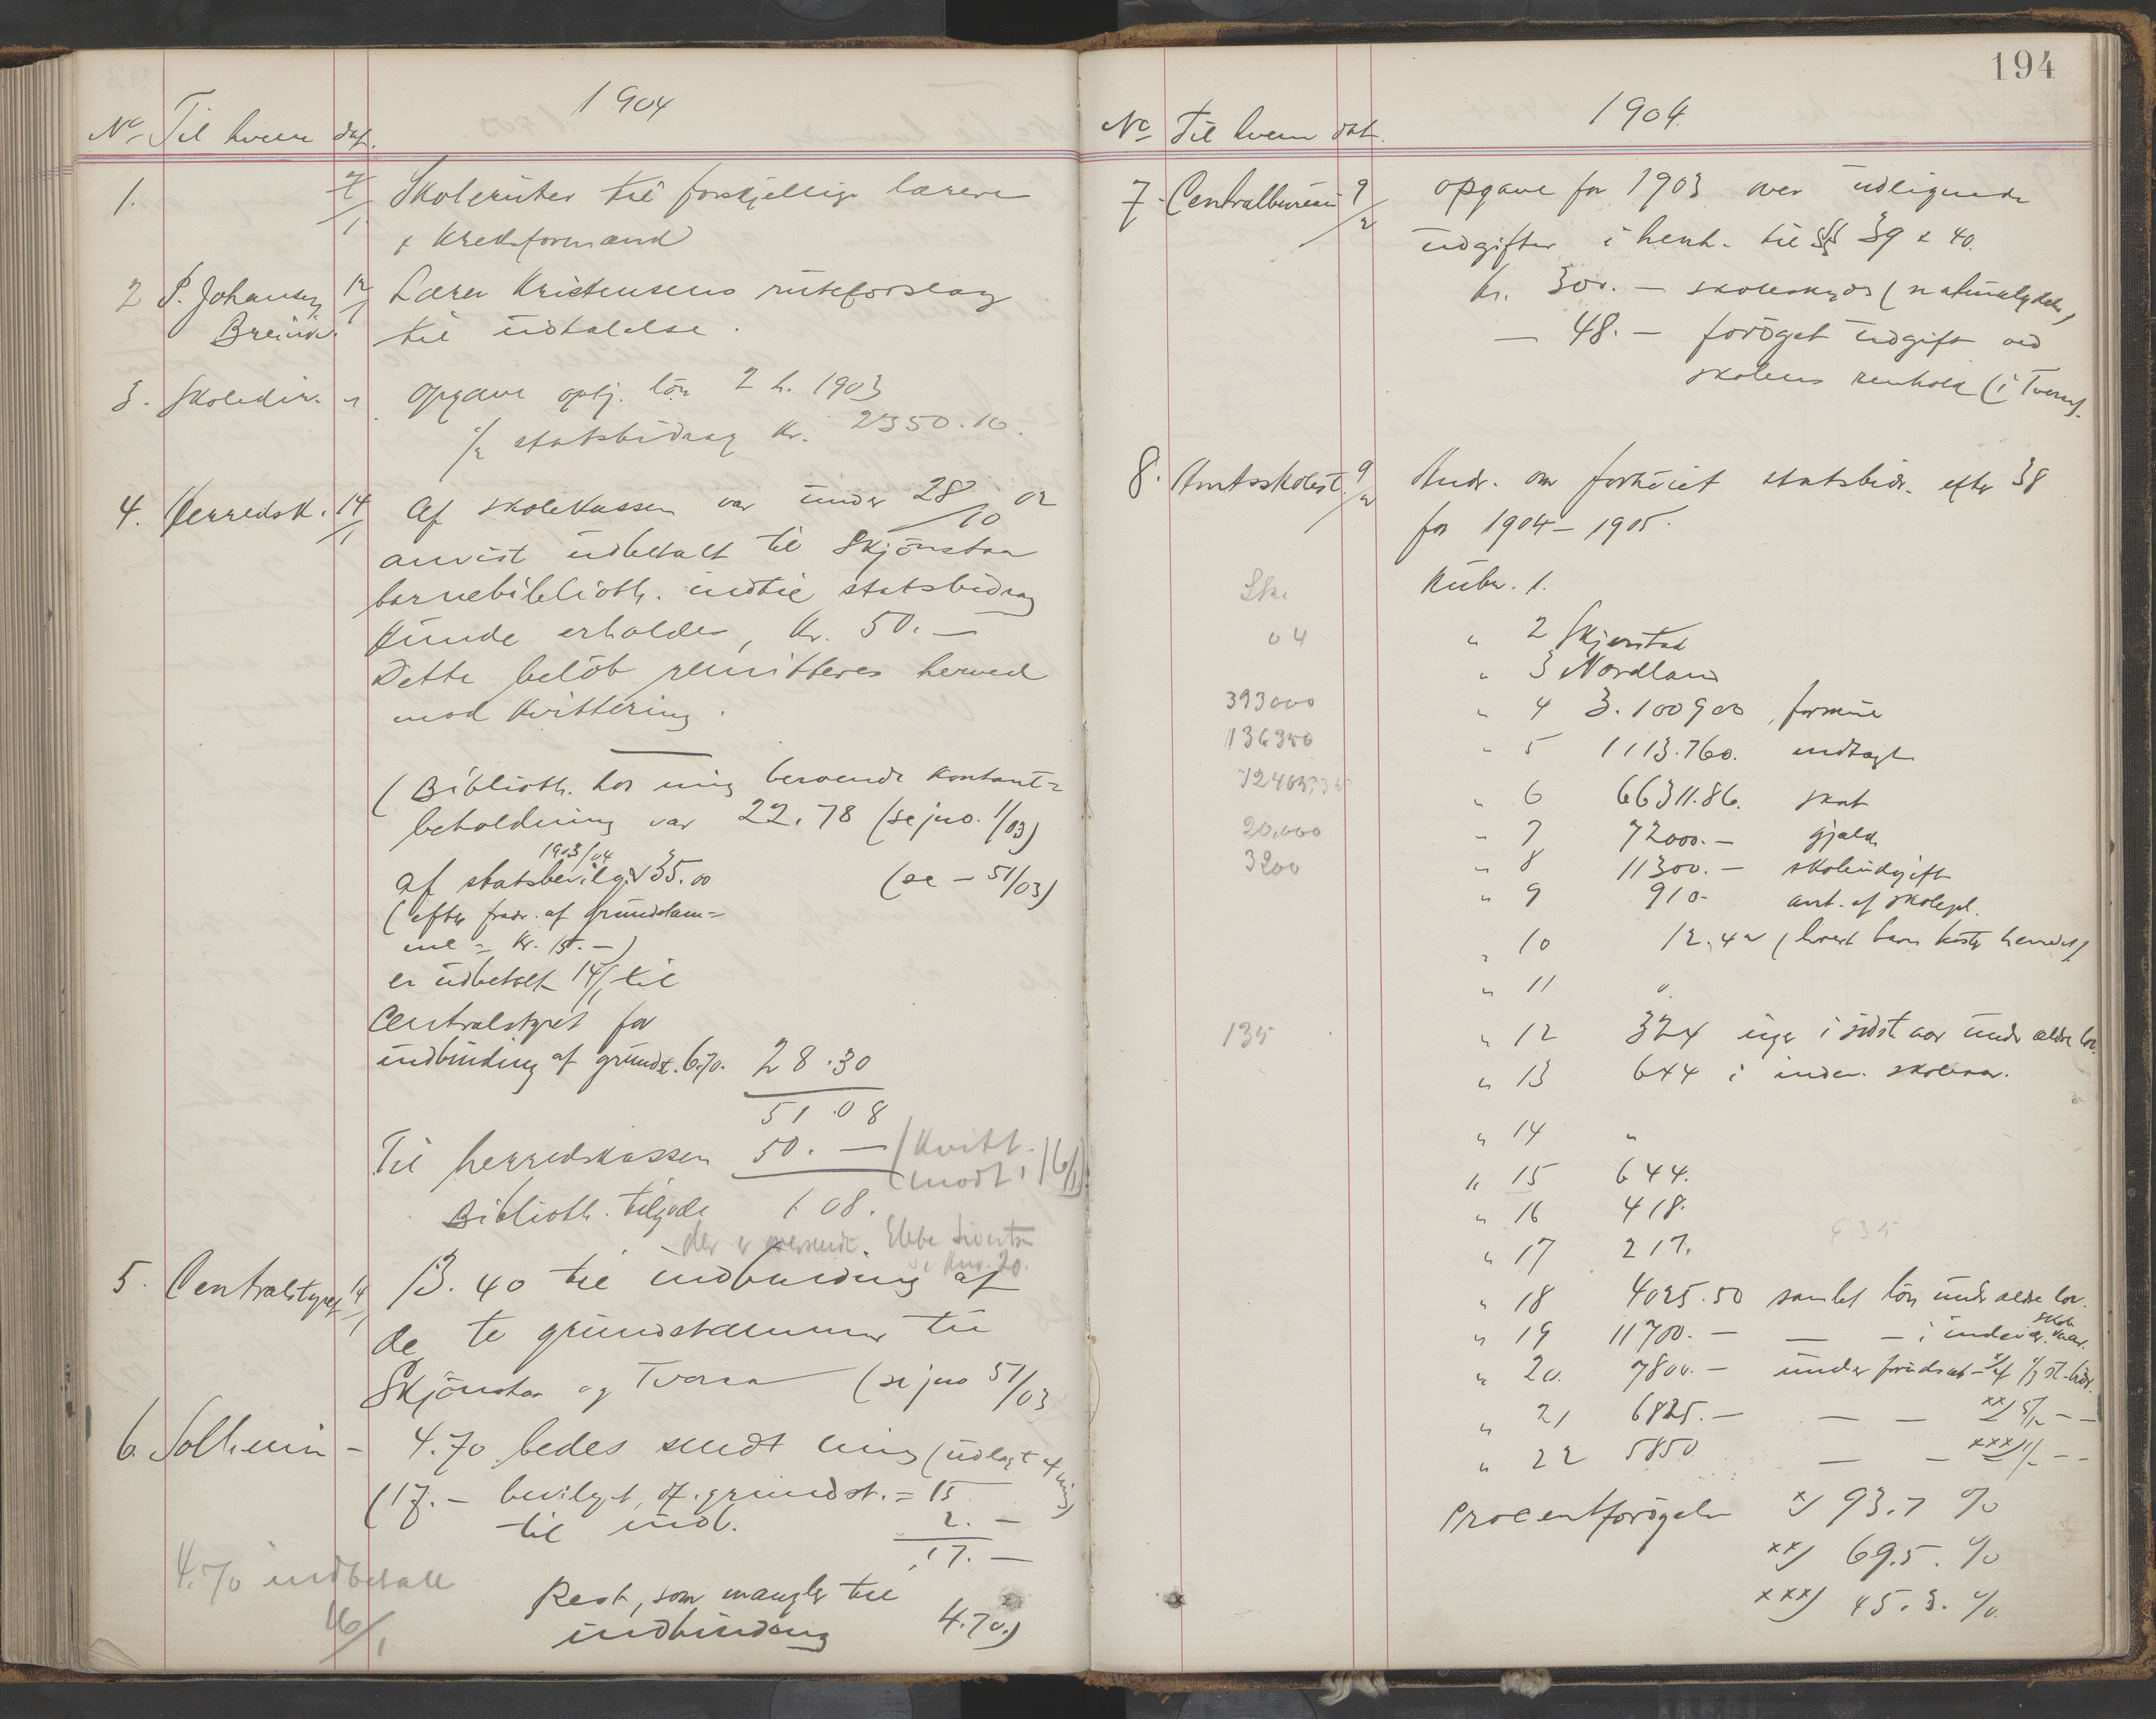 1904
No Til hvem dat.
1. 7/1 Skoleruter til forskjellige lærere
& Kredsformænd
2 P. Johansen 12/1 Lærer Kristensens ruteforslag
Breivik. til udtalelse.
3. Skoledir. " Opgave optj. løn 2 h. 1903
1/2 statsbidrag Kr. 2350.10.
4. Herredsk. 14/1 Af skolekassen var under 28/10 02
anvist udbetalt til Skjönstaa
barnebiblioth. indtil statsbidrag
kunde erholdes, Kr. 50. —
Dette belöb remitteres herved
mod kvittering.
(Biblioth. hos mig beroende kontant=
beholdning var 22.78 (se jno. 1/03)
1903/04
af statsbevilgn. 35.00 (se — 51/03)
(efter fradr. af grundstam=
me = Kr. 15. —)
er udbetalt 14/1 til
Centralstyret for
indbinding af grundst. 6.70. 28.30
51.08
Til herredskassen 50. — (Kvitt.
modt. 16/1)
Biblioth. tilgode 1 08.
der er oversendt. Ebbe Sivertsen
se jno. 20.
5. Centralstyret 14/1 13.40 til indbinding af
de to grundstammer til
Skjönstaa og Tveraa (se jno 51/03
6. Solheim — 4.70 bedes sendt mig (udlagt af mig)
(17. — bevilget, of. grundst. = 15
til indb. 2. —
17. —
Rest, som mangler til
indbinding 4.70.)
4.70 indbetalt
16/1
194
1904.
No Til hvem dat.
7. Centralbureau 9/2 Opgave for 1903 over udlignede
udgifter i henh. til §§ 39 & 40.
Kr. 300. — skoleskyds (naturalydelse)
— 48. — foröget udgift ved
skolens renhold (i Tveraa).
8. Amtsskolest. 9/2 Andr. om forhöiet statsbidr. efter 38
for 1904 — 1905.
Rubr. 1.
Skj.
04 " 2 Skjerstad
" 3 Nordland
393000 " 4 3.100900, formue
136350 " 5 1113.760. indtægt
12405,35 " 6 66311.86. skat
20,000 " 7 72000. — gjæld
3200 " 8 11300. — skoleudgift
" 9 910 - ant. af skolepl.
" 10 12.42 (hvert barn koster herredet)
" 11 "
135 " 12 324 uger i sidst aar under ældre lov.
" 13 644 i indev. skoleaar.
" 14 "
" 15 644.
" 16 418.
635
" 17 217.
" 18 4025.50 samlet lön under ældre lov.
" 19 11700. — — — i indevær. skoleaar.
" 20. 7800. — under forudsætn. x) af 1/3 st.bidr.
" 21 6825. — — — xx) 5/12 — —
" 22 5850 — — xxx) 1/2 — —
Procentforögelse x) 93.7 %
xx) 69.5. %
xxx) 45.3. %